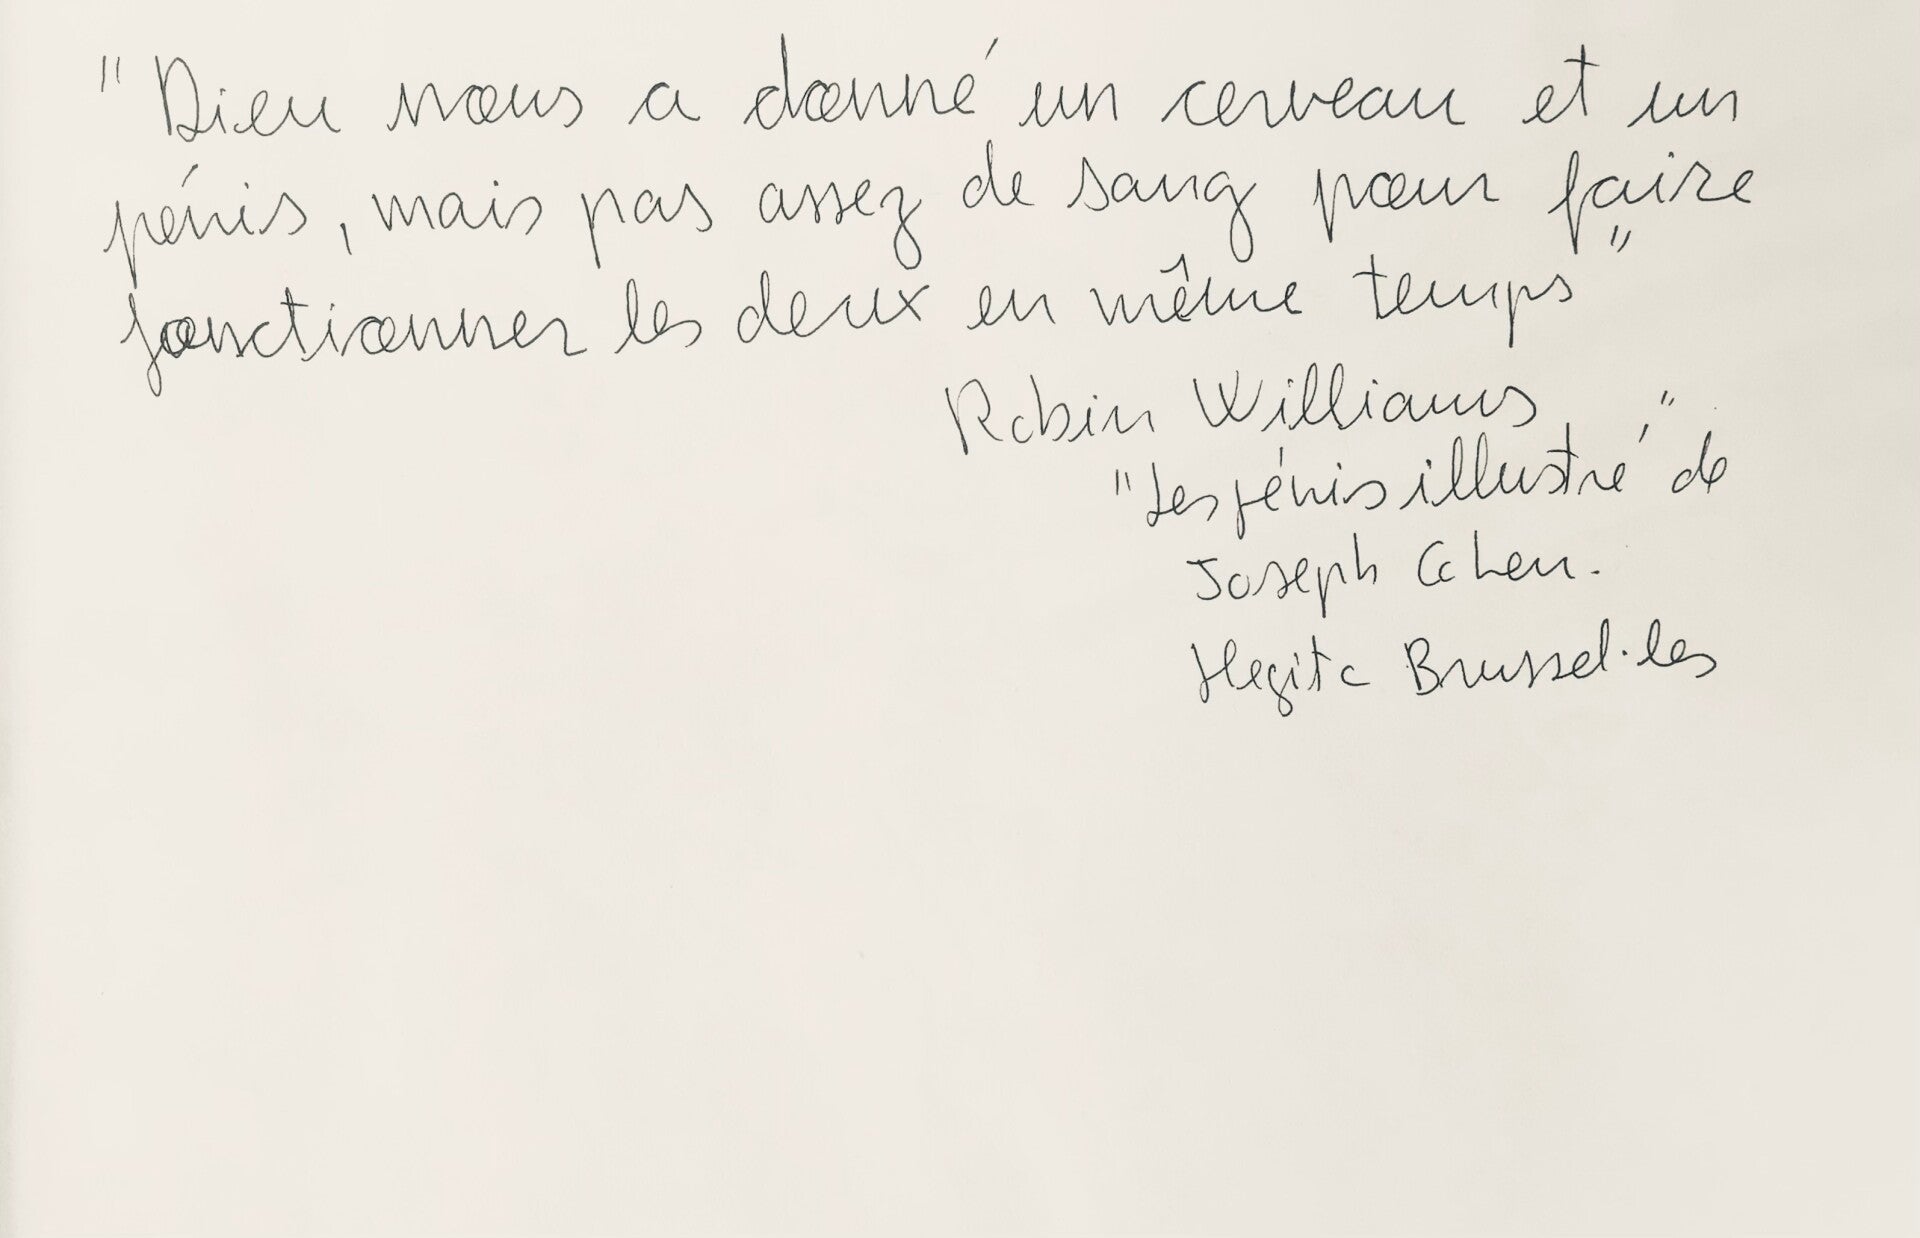 "Dieu nous a donné un cerveau et un
pénis, mais pas assez de sang pour faire
fonctionner les deux en même temps"
Robin Williams
"Les pénis illustré" de
Joseph Cohen.
Brussel·les